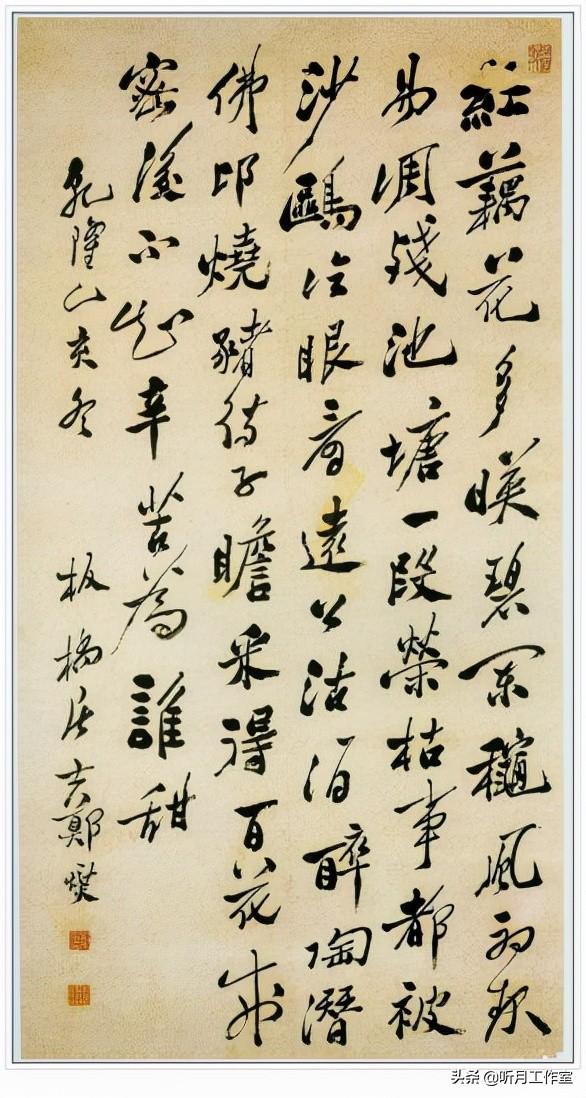 紅藕花多暎碧闌龝風初
易凋殘池塘一段榮枯事都被
沙鷗冷眼看遠公沽酒醉陶潛
佛印燒豬待子瞻采得百花成
蜜後不知辛苦為誰甜
乾隆乙亥冬 板橋居士鄭燮
头条 @听月工作室